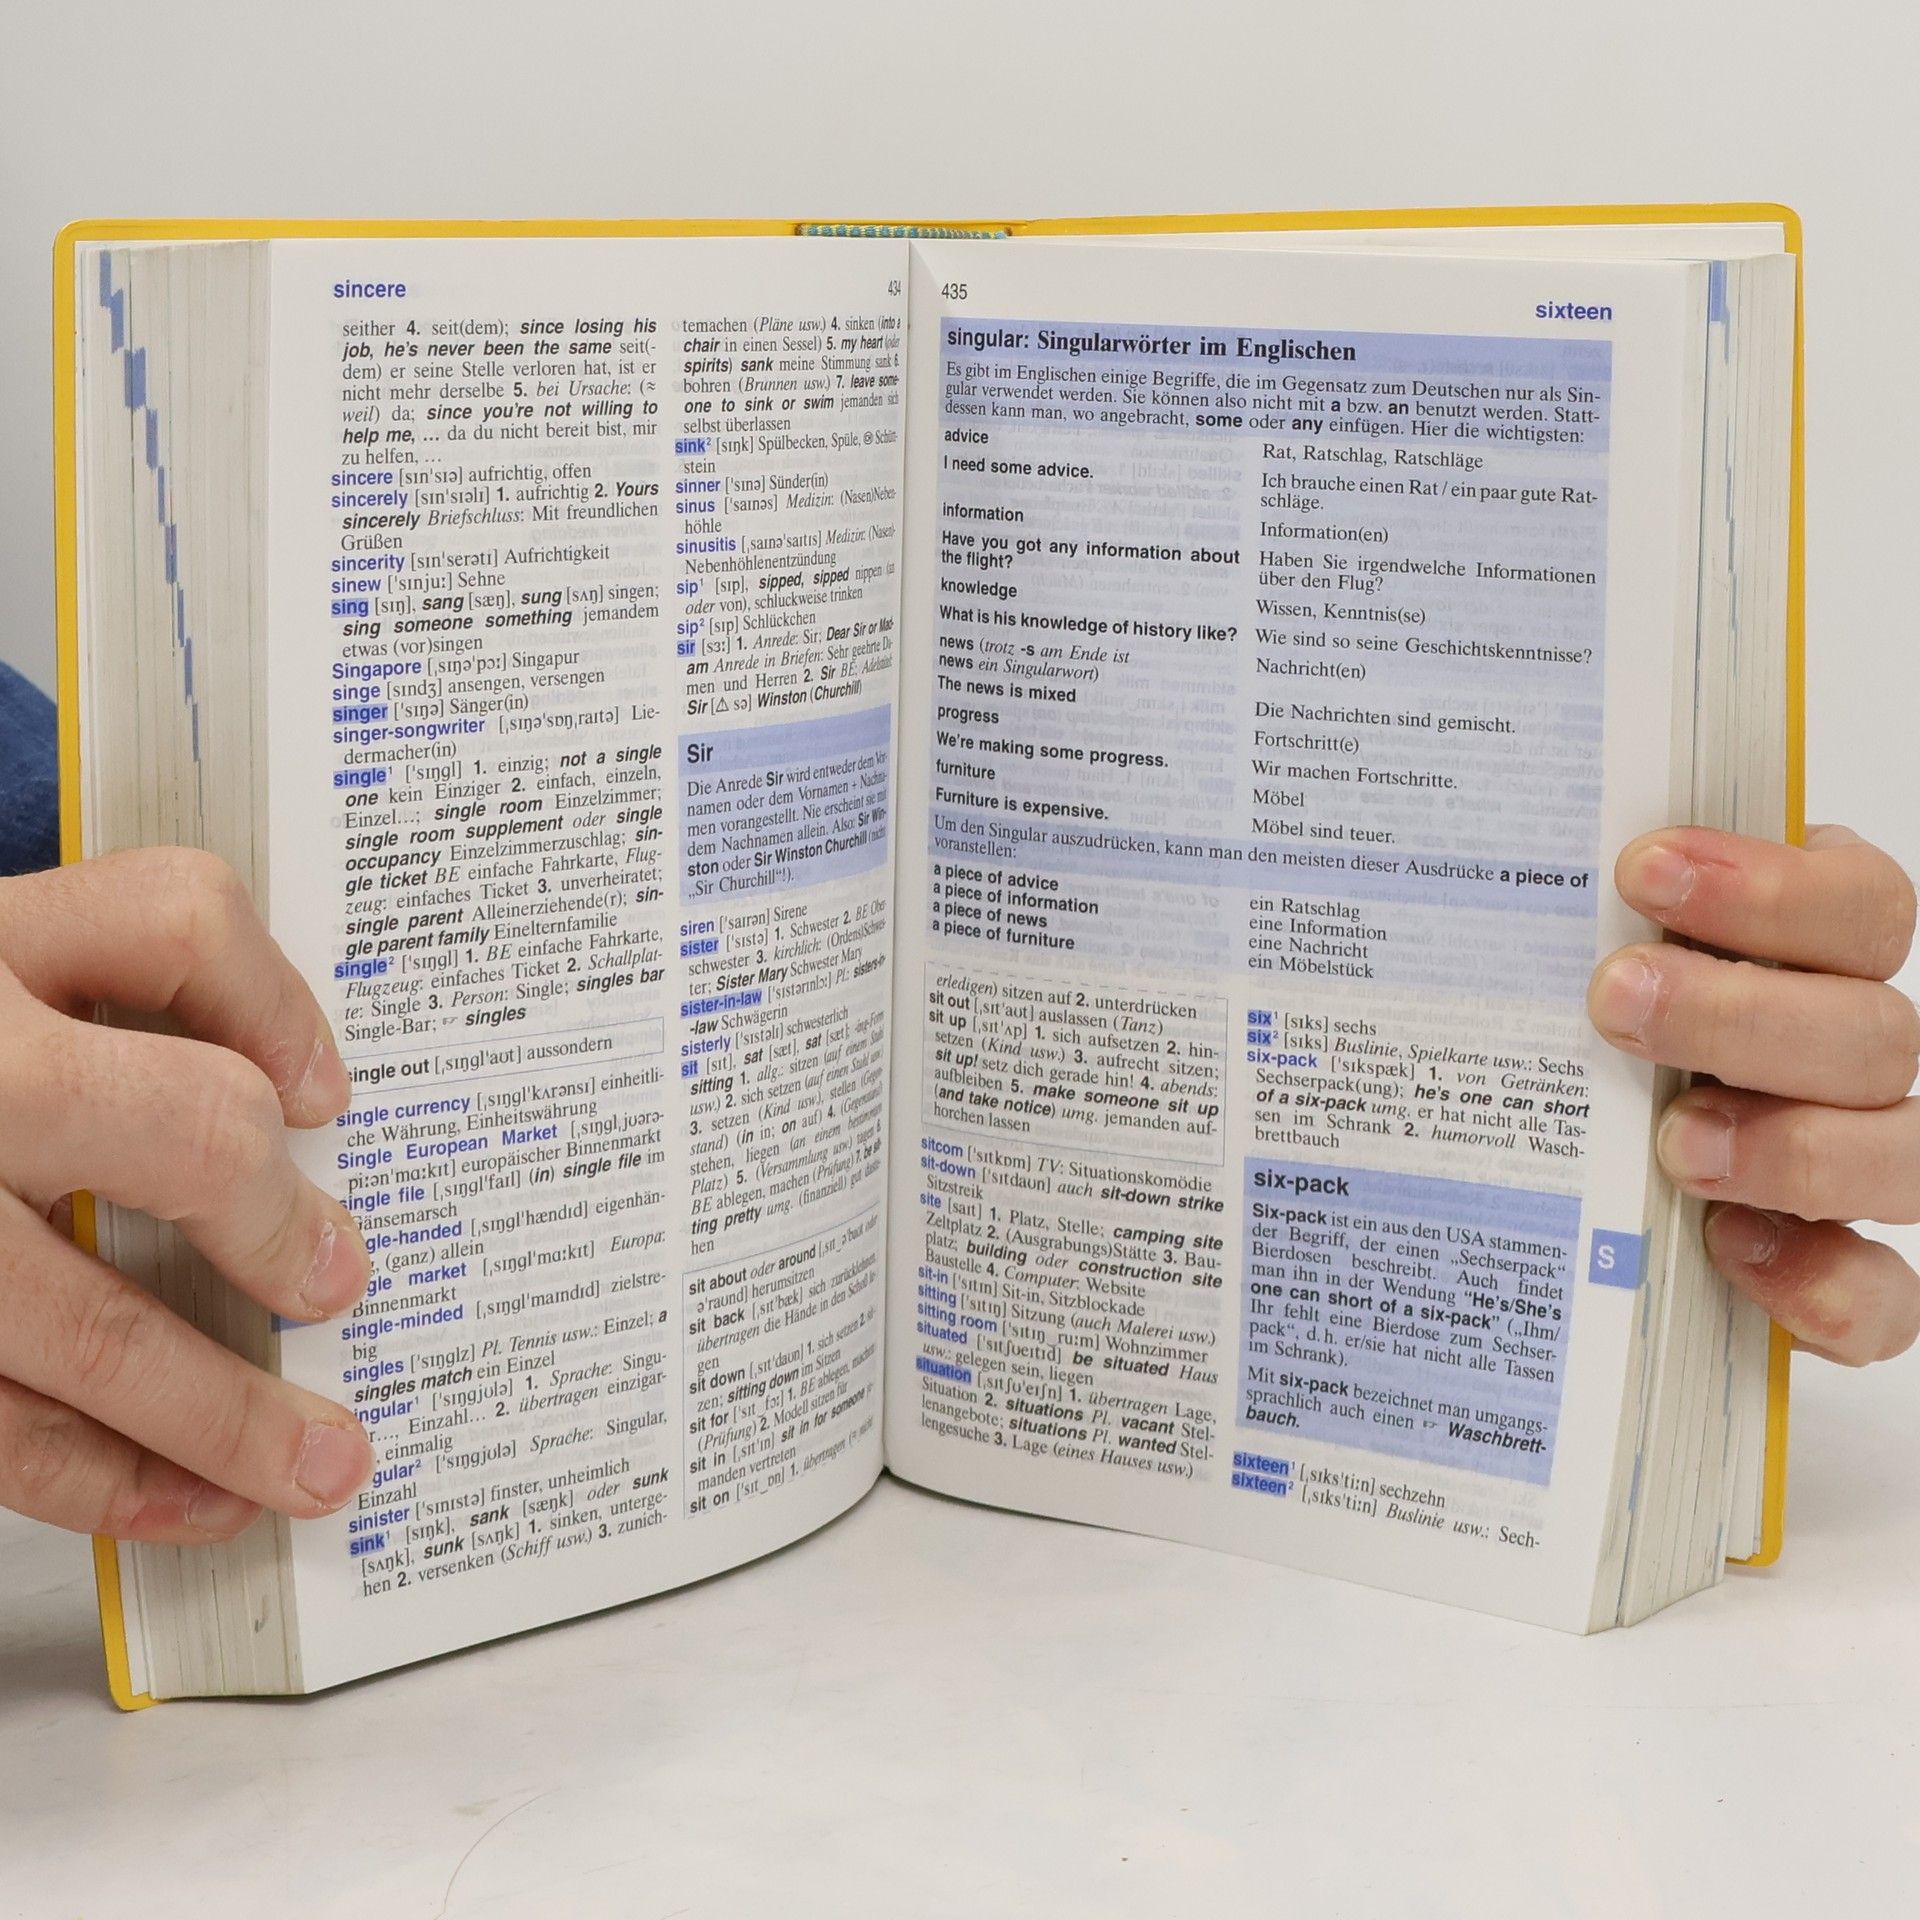 sincere
434
seither 4. seit(dem); since losing his
job, he's never been the same seit(-
dem) er seine Stelle verloren hat, ist er
nicht mehr derselbe 5. bei Ursache: (≈
weil) da; since you're not willing to
help me, ... da du nicht bereit bist, mir
zu helfen, ...
sincere [sɪn'sɪə] aufrichtig, offen
sincerely [sɪn'sɪəlɪ] 1. aufrichtig 2. Yours
sincerely Briefschluss: Mit freundlichen
Grüßen
sincerity [sɪn'serətɪ] Aufrichtigkeit
sinew ['sɪnjuː] Sehne
sing [sɪŋ], sang [sæŋ], sung [sʌŋ] singen;
sing someone something jemandem
etwas (vor)singen
Singapore [ˌsɪŋə'pɔː] Singapur
singe [sɪndʒ] ansengen, versengen
singer ['sɪŋə] Sänger(in)
singer-songwriter [ˌsɪŋə'sɒŋˌraɪtə] Lie-
dermacher(in)
single¹ ['sɪŋgl] 1. einzig; not a single
one kein Einziger 2. einfach, einzeln,
Einzel...; single room Einzelzimmer;
single room supplement oder single
occupancy Einzelzimmerzuschlag; sin-
gle ticket BE einfache Fahrkarte, Flug-
zeug: einfaches Ticket 3. unverheiratet;
single parent Alleinerziehende(r); sin-
gle parent family Einelternfamilie
single² ['sɪŋgl] 1. BE einfache Fahrkarte,
Flugzeug: einfaches Ticket 2. Schallplat-
te: Single 3. Person: Single; singles bar
Single-Bar; ☞ singles
single out [ˌsɪŋgl'aʊt] aussondern
single currency [ˌsɪŋgl'kʌrənsɪ] einheitli-
che Währung, Einheitswährung
Single European Market [ˌsɪŋglˌjʊərə-
piːən'mɑːkɪt] europäischer Binnenmarkt
single file [ˌsɪŋgl'faɪl] (in) single file im
Gänsemarsch
gle-handed [ˌsɪŋgl'hændɪd] eigenhän-
, (ganz) allein
gle market [ˌsɪŋgl'mɑːkɪt] Europa:
Binnenmarkt
single-minded [ˌsɪŋgl'maɪndɪd] zielstre-
big
singles ['sɪŋglz] Pl. Tennis usw.: Einzel; a
singles match ein Einzel
ingular¹ ['sɪŋgjʊlə] 1. Sprache: Singu-
r..., Einzahl... 2. übertragen einzigar-
, einmalig
gular² ['sɪŋgjʊlə] Sprache: Singular,
Einzahl
sinister ['sɪnɪstə] finster, unheimlich
sink¹ [sɪŋk], sank [sæŋk] oder sunk
[sʌŋk], sunk [sʌŋk] 1. sinken, unterge-
hen 2. versenken (Schiff usw.) 3. zunich-
temachen (Pläne usw.) 4. sinken (into a
chair in einen Sessel) 5. my heart (oder
spirits) sank meine Stimmung sank 6.
bohren (Brunnen usw.) 7. leave some-
one to sink or swim jemanden sich
selbst überlassen
sink² [sɪŋk] Spülbecken, Spüle, Schütt-
stein
sinner ['sɪnə] Sünder(in)
sinus ['saɪnəs] Medizin: (Nasen)Neben-
höhle
sinusitis [ˌsaɪnə'saɪtɪs] Medizin: (Nasen)-
Nebenhöhlenentzündung
sip¹ [sɪp], sipped, sipped nippen (an
oder von), schluckweise trinken
sip² [sɪp] Schlückchen
sir [sɜː] 1. Anrede: Sir; Dear Sir or Mad-
am Anrede in Briefen: Sehr geehrte Da-
men und Herren 2. Sir BE; Adelstitel
Sir [⚠ sə] Winston (Churchill)
Sir
Die Anrede Sir wird entweder dem Vor-
namen oder dem Vornamen + Nachna-
men vorangestellt. Nie erscheint sie mit
dem Nachnamen allein. Also: Sir Win-
ston oder Sir Winston Churchill (nicht
„Sir Churchill“!).
siren ['saɪrən] Sirene
sister ['sɪstə] 1. Schwester 2. BE Ober-
schwester 3. kirchlich: (Ordens)Schwes-
ter; Sister Mary Schwester Mary
sister-in-law ['sɪstərɪnlɔː] Pl.: sisters-in-
-law Schwägerin
sisterly ['sɪstəlɪ] schwesterlich
sit [sɪt], sat [sæt], sat [sæt]; -ing-Form
sitting 1. allg.: sitzen (auf einem Stuhl
usw.) 2. sich setzen (auf einen Stuhl usw.)
3. setzen (Kind usw.), stellen (Gegen-
stand) (in in; on auf) 4. (Gegenstand)
stehen, liegen (an einem bestimmten
Platz) 5. (Versammlung usw.) tagen 6.
BE ablegen, machen (Prüfung) 7. be sit-
ting pretty umg. (finanziell) gut daste-
hen
sit about oder around [ˌsɪt_ə'baʊt oder
ə'raʊnd] herumsitzen
sit back [ˌsɪt'bæk] sich zurücklehnen,
übertragen die Hände in den Schoß le-
gen
sit down [ˌsɪt'daʊn] 1. sich setzen 2. sit-
zen; sitting down im Sitzen
sit for ['sɪt_fɔː] 1. BE ablegen, machen
(Prüfung) 2. Modell sitzen für
sit in [ˌsɪt'ɪn] sit in for someone je-
manden vertreten
sit on ['sɪt_ɒn] 1. übertragen (= nicht
435
sixteen
singular: Singularwörter im Englischen
Es gibt im Englischen einige Begriffe, die im Gegensatz zum Deutschen nur als Sin-
gular verwendet werden. Sie können also nicht mit a bzw. an benutzt werden. Statt-
dessen kann man, wo angebracht, some oder any einfügen. Hier die wichtigsten:
advice Rat, Ratschlag, Ratschläge
I need some advice. Ich brauche einen Rat / ein paar gute Rat-
schläge.
information Information(en)
Have you got any information about Haben Sie irgendwelche Informationen
the flight? über den Flug?
knowledge Wissen, Kenntnis(se)
What is his knowledge of history like? Wie sind so seine Geschichtskenntnisse?
news (trotz -s am Ende ist Nachricht(en)
news ein Singularwort)
The news is mixed Die Nachrichten sind gemischt.
progress Fortschritt(e)
We're making some progress. Wir machen Fortschritte.
furniture Möbel
Furniture is expensive. Möbel sind teuer.
Um den Singular auszudrücken, kann man den meisten dieser Ausdrücke a piece of
voranstellen:
a piece of advice ein Ratschlag
a piece of information eine Information
a piece of news eine Nachricht
a piece of furniture ein Möbelstück
erledigen) sitzen auf 2. unterdrücken
sit out [ˌsɪt'aʊt] auslassen (Tanz)
sit up [ˌsɪt'ʌp] 1. sich aufsetzen 2. hin-
setzen (Kind usw.) 3. aufrecht sitzen;
sit up! setz dich gerade hin! 4. abends:
aufbleiben 5. make someone sit up
(and take notice) umg. jemanden auf-
horchen lassen
sitcom ['sɪtkɒm] TV: Situationskomödie
sit-down ['sɪtdaʊn] auch sit-down strike
Sitzstreik
site [saɪt] 1. Platz, Stelle; camping site
Zeltplatz 2. (Ausgrabungs)Stätte 3. Bau-
platz; building oder construction site
Baustelle 4. Computer: Website
sit-in ['sɪtɪn] Sit-in, Sitzblockade
sitting ['sɪtɪŋ] Sitzung (auch Malerei usw.)
sitting room ['sɪtɪŋ_ruːm] Wohnzimmer
situated ['sɪtʃʊeɪtɪd] be situated Haus
usw.: gelegen sein, liegen
situation [ˌsɪtʃʊ'eɪʃn] 1. übertragen Lage,
Situation 2. situations Pl. vacant Stel-
lenangebote; situations Pl. wanted Stel-
lengesuche 3. Lage (eines Hauses usw.)
six¹ [sɪks] sechs
six² [sɪks] Buslinie, Spielkarte usw.: Sechs
six-pack ['sɪkspæk] 1. von Getränken:
Sechserpack(ung); he's one can short
of a six-pack umg. er hat nicht alle Tas-
sen im Schrank 2. humorvoll Wasch-
brettbauch
six-pack
Six-pack ist ein aus den USA stammen-
der Begriff, der einen „Sechserpack“
Bierdosen beschreibt. Auch findet
man ihn in der Wendung “He's/She's
one can short of a six-pack” („Ihm/
Ihr fehlt eine Bierdose zum Sechser-
pack“, d. h. er/sie hat nicht alle Tassen
im Schrank).
Mit six-pack bezeichnet man umgangs-
sprachlich auch einen ☞ Waschbrett-
bauch.
sixteen¹ [ˌsɪks'tiːn] sechzehn
sixteen² [ˌsɪks'tiːn] Buslinie usw.: Sech-
S